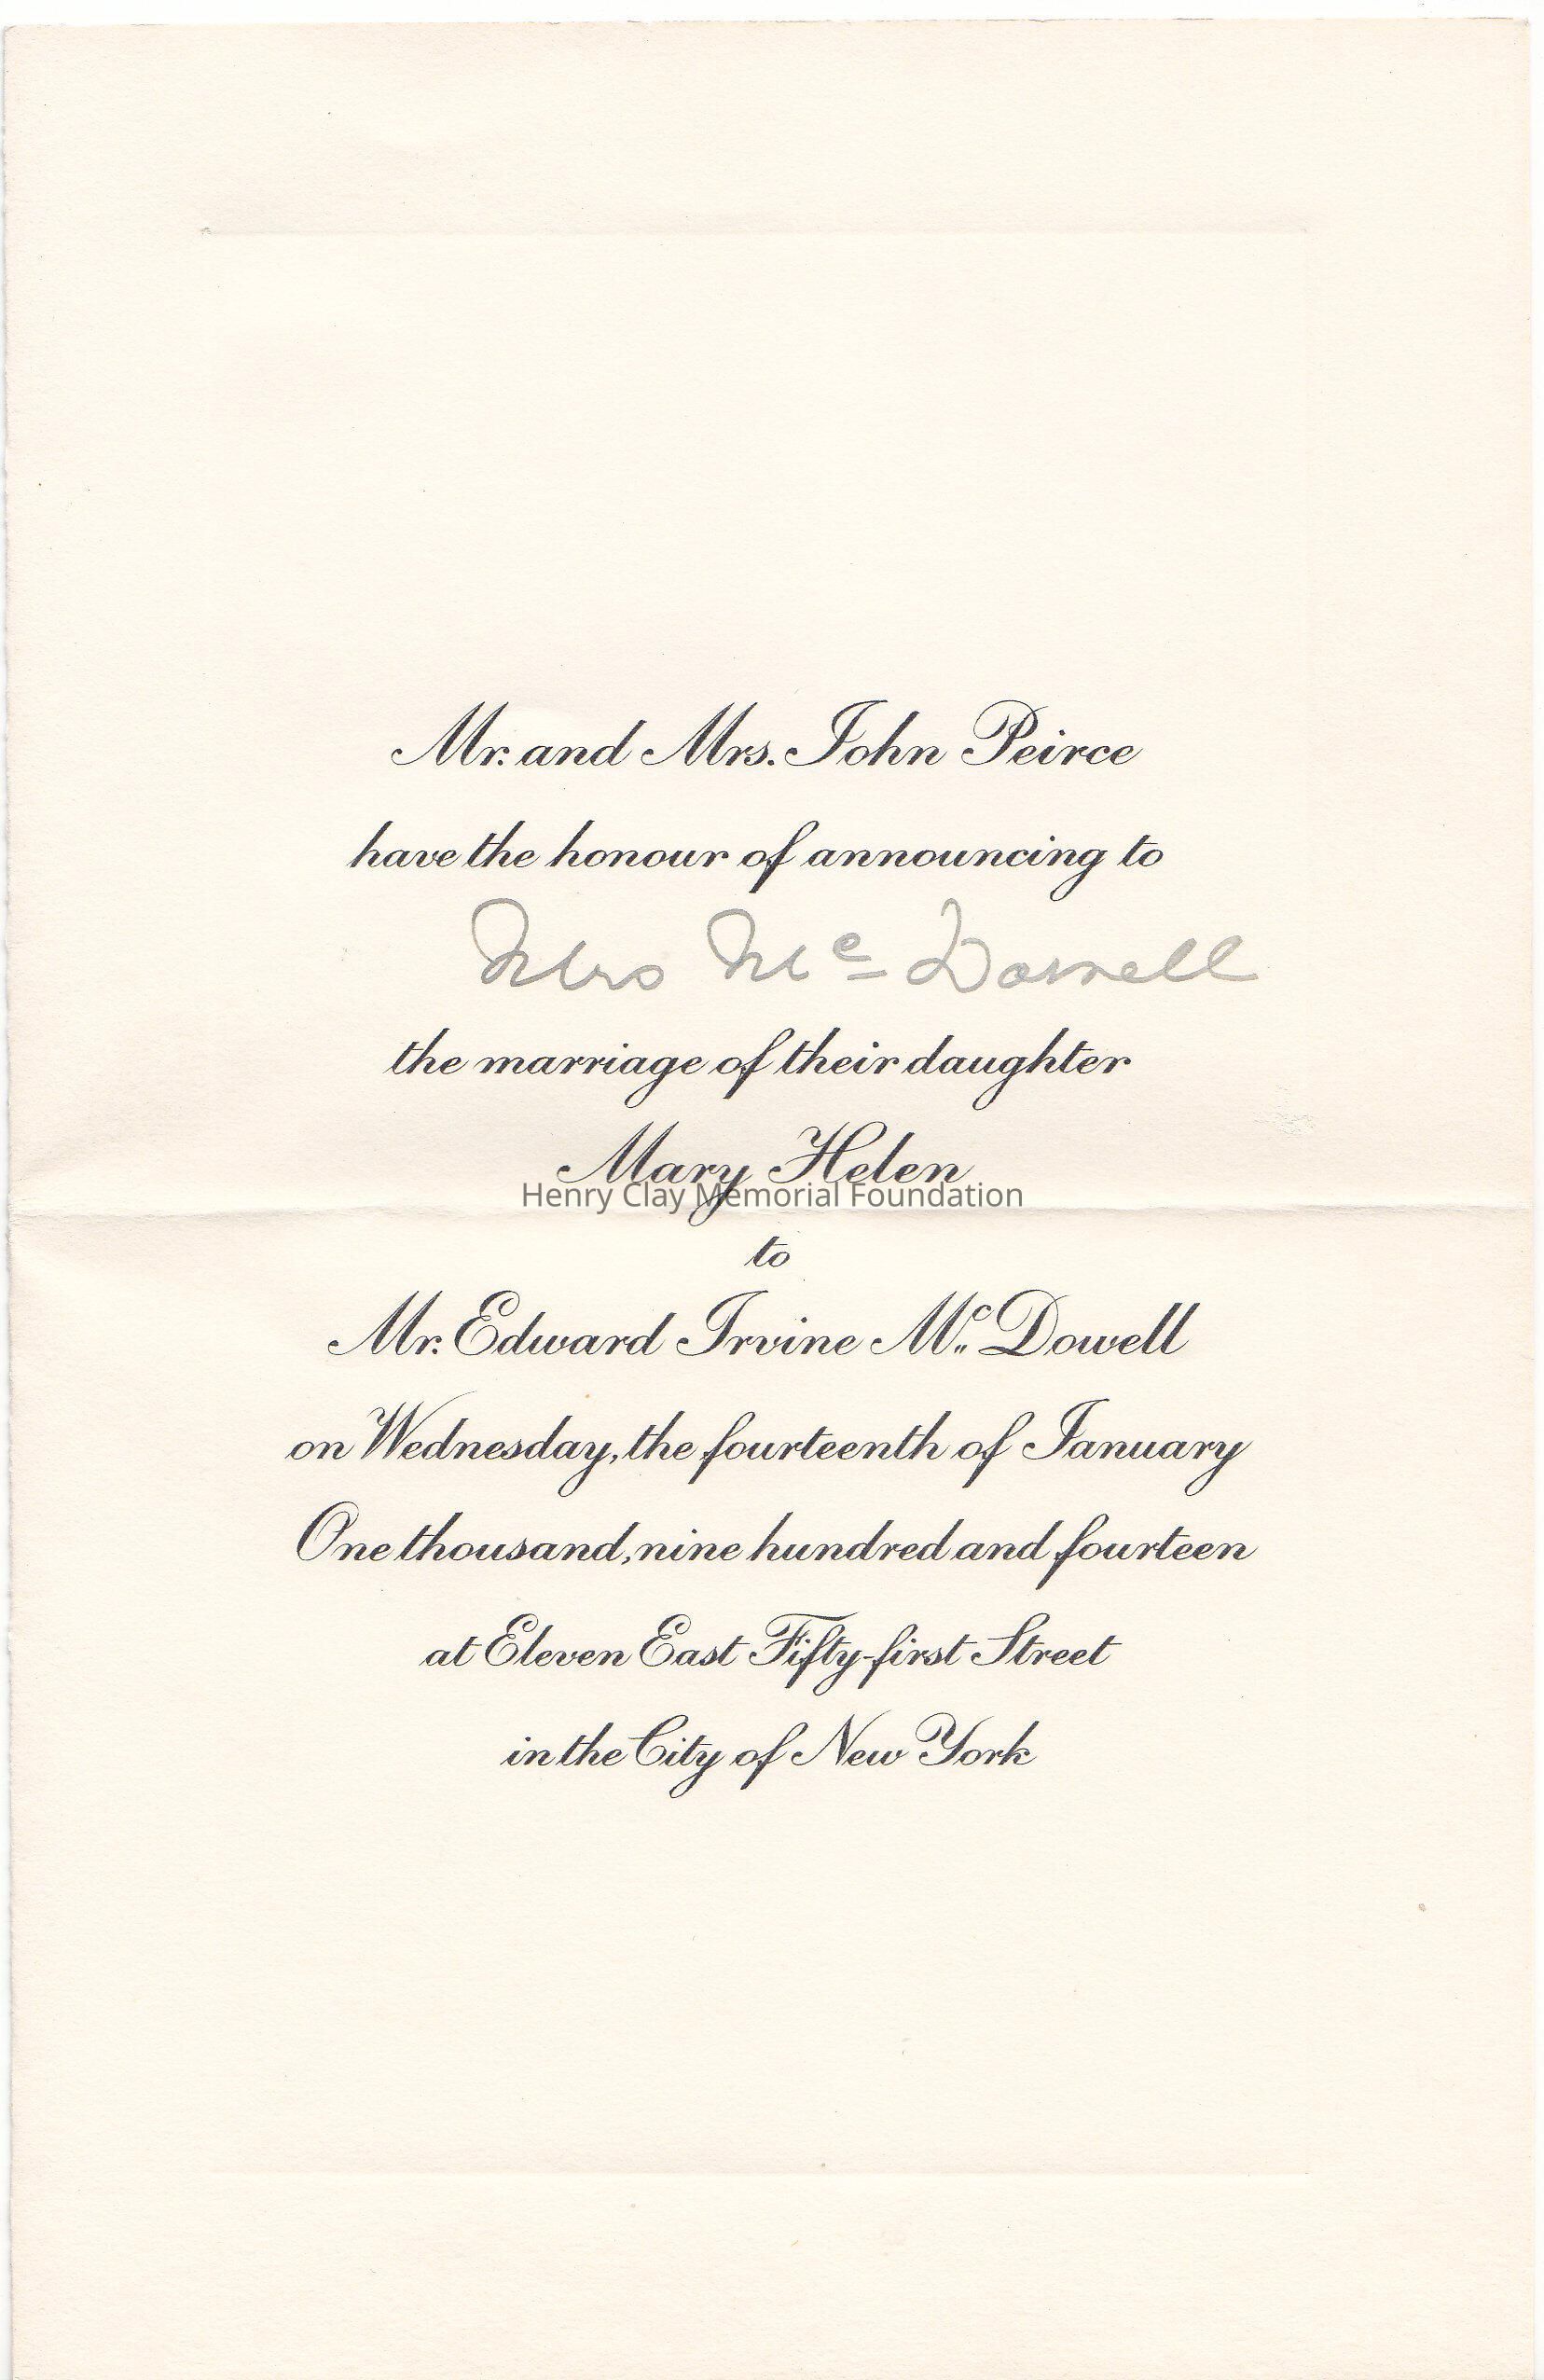 Mr. and Mrs. John Peirce
have the honour of announcing to
Mrs Mc Dowell
the marriage of their daughter
Mary Helen
Henry Clay Memorial Foundation
to
Mr. Edward Irvine Mc. Dowell
on Wednesday, the fourteenth of January
One thousand, nine hundred and fourteen
at Eleven East Fifty-first Street
in the City of New York